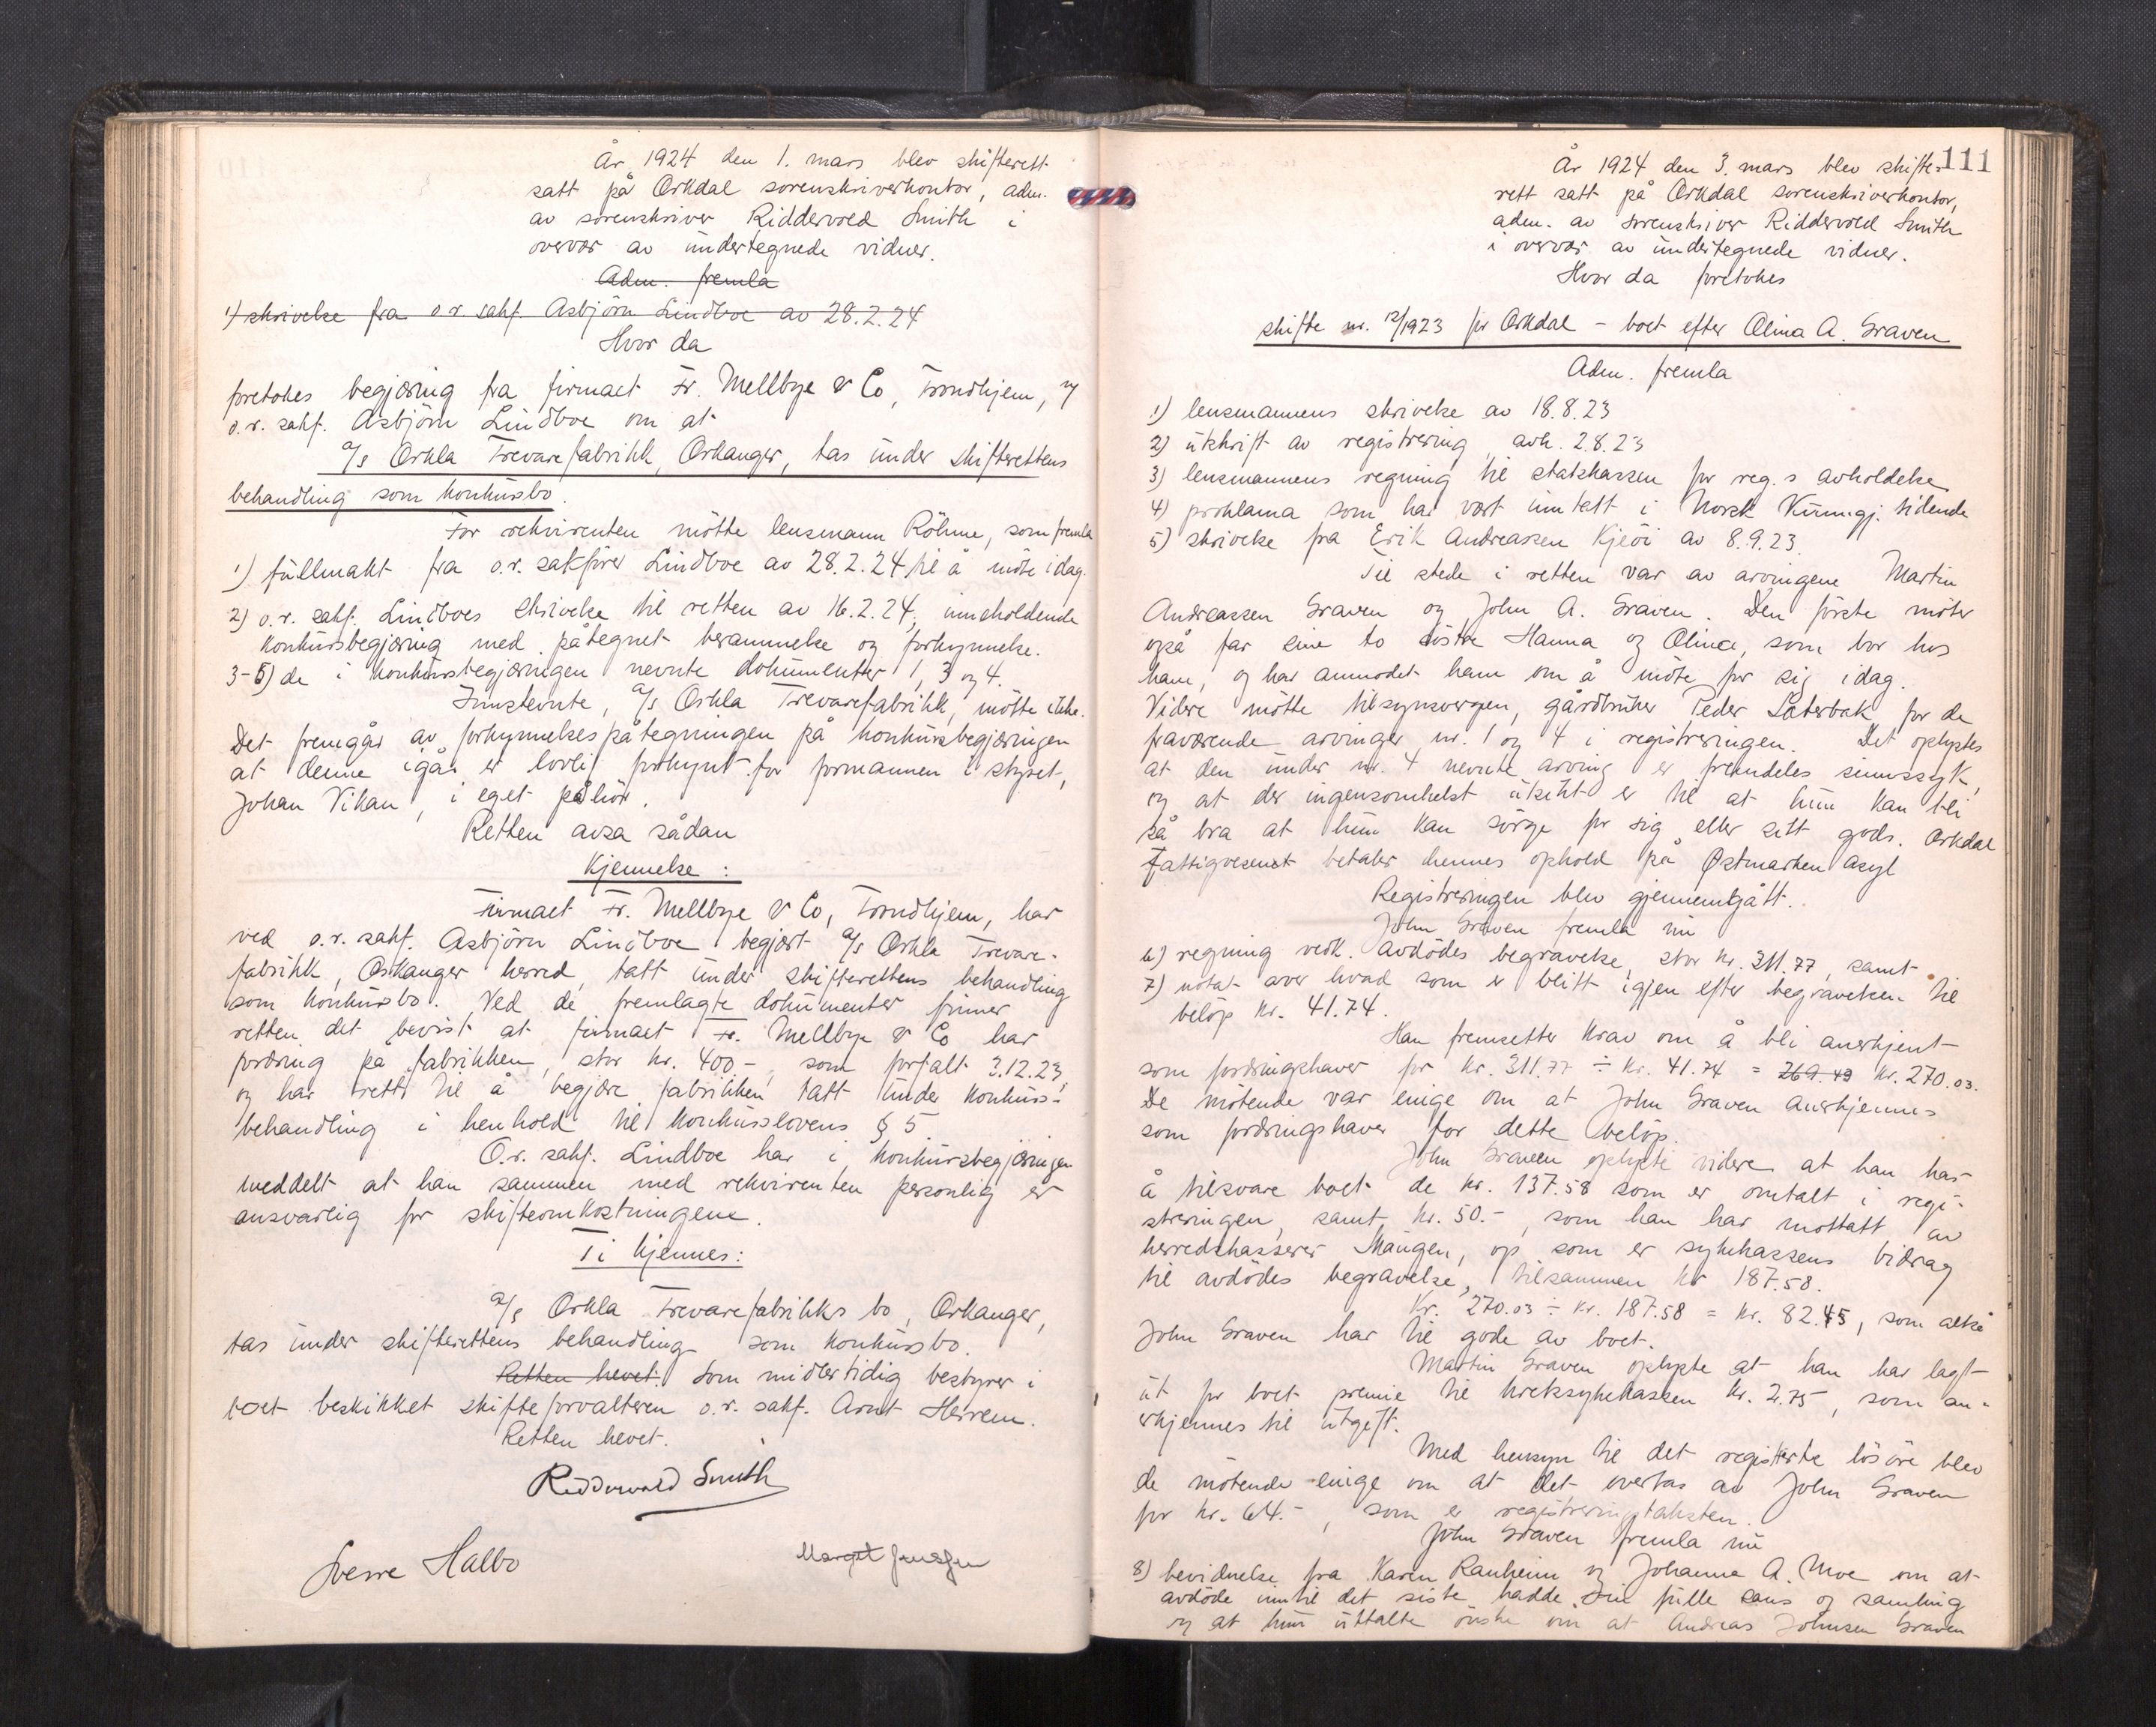 År 1924 den 1. mars blev skifterett
satt på Orkdal sorenskriverkontor, adm.
av sorenskriver Riddervold Smith i
overvær av undertegnede vidner.
Adm. fremla
1) skrivelse fra o.r. sakf. Asbjörn Lindboe av 28.2.24
Hvor da
foretokes begjæring fra firmaet Fr. Mellbye & Co, Trondhjem, v/
o.r. sakf. Asbjörn Lindboe om at
A/s Orkla Trevarefabrikk, Orkanger, tas under skifterettens
behandling som konkursbo.
For rekvirenten mötte lensmann Röhme, som fremla
1) fullmakt fra o.r. sakförer Lindboe av 28.2.24 til å möte idag.
2) o.r. sakf. Lindboes skrivelse til retten av 16.2.24, inneholdende
konkursbegjæring med påtegnet berammelse og forkynnelse.
3-5) de i konkursbegjæringen nevnte dokumenter 1, 3 og 4.
Innstevnte, A/s Orkla Trevarefabrikk, mötte ikke.
Det fremgår av forkynnelsespåtegningen på konkursbegjæringen
at denne igår er lovlig forkynt for formannen i styret,
Johan Vikan, i eget påhör.
Retten avsa sådan
Kjennelse:
Firmaet Fr. Mellbye & Co, Trondhjem, har
ved o.r. sakf. Asbjörn Lindboe begjært A/s Orkla Trevare-
fabrikk, Orkanger herred, tatt under skifterettens behandling
som konkursbo. Ved de fremlagte dokumenter finner
retten det bevist at firmaet Fr. Mellbye & Co har
fordring på fabrikken, stor kr. 400.-, som forfalt 3.12.23,
og har rett til å begjære fabrikken tatt under konkurs-
behandling i henhold til konkurslovens § 5.
O.r. sakf. Lindboe har i konkursbegjæringen
meddelt at han sammen med rekvirenten personlig er
ansvarlig for skifteomkostningene.
Ti kjennes:
A/s Orkla Trevarefabrikks bo, Orkanger,
tas under skifterettens behandling som konkursbo.
Retten hevet. Som midlertidig bestyrer i
boet beskikket skifteforvalteren o.r. sakf. Arnt Herrem.
Retten hevet.
Riddervold Smith
Sverre Halbo
Margit Janssen
111
År 1924 den 3. mars blev skifte-
rett satt på Orkdal sorenskriverkontor,
adm. av sorenskriver Riddervold Smith
i overvær av undertegnede vidner.
Hvor da foretokes
skifte nr. 12/1923 for Orkdal - boet efter Olina A. Graven
Adm. fremla
1) lensmannens skrivelse av 18.8.23
2) utskrift av registrering avh. 2.8.23
3) lensmannens regning til statskassen for reg.s avholdelse
4) proklama som har vært inntatt i Norsk Kunngj. tidende
5) skrivelse fra Erik Andreassen Kjeöi av 8.9.23.
Til stede i retten var av arvingene Martin
Andreassen Graven og John A. Graven. Den förste möter
også for sine to söstre Hanna og Oline, som bor hos
ham, og har anmodet ham om å möte for sig idag.
Videre mötte tilsynsvergen, gårdbruker Peder Sæterbak for de
fraværende arvinger nr. 1 og 4 i registreringen. Det oplystes
at den under nr. 4 nevnte arving er fremdeles sinnssyk,
og at der ingensomhelst utsikt er til at hun kan bli
så bra at hun kan sörge for sig eller sitt gods. Orkdal
Fattigvesenet betaler hennes ophold på Østmarken Asyl
Registreringen blev gjennemgått.
John Graven fremla nu
6) regning vedk. avdödes begravelse stor kr. 311.77, samt
7) notat over hvad som er blitt igjen efter begravelsen til
belöp kr. 41.74.
Han fremsetter krav om å bli anerkjent
som fordringshaver for kr. 311.77 ÷ kr. 41.74 = 269.49 kr. 270.03.
De mötende var enige om at John Graven anerkjennes
som fordringshaver for dette belöp.
John Graven oplyste videre at han har
å tilsvare boet de kr. 137.58 som er omtalt i regi-
streringen, samt kr. 50.-, som han har mottatt av
herredskasserer Maugen, og som er sykekassens bidrag
til avdödes begravelse, tilsammen kr 187.58.
Kr. 270.03 ÷ kr. 187.58 = kr. 82.45, som altså
John Graven har til gode av boet.
Martin Graven oplyste at han har lagt
ut for boet premie til kretssykekassen kr. 2.75, som an-
erkjennes til utgift.
Med hensyn til det registrerte lösöre blev
de mötende enige om at det overtas av John Graven
for kr. 64.-, som er registreringstaksten.
John Graven fremla nu
8) bevidnelse fra Karen Ranheim og Johanna A. Moe om at
avdöde inntil det siste hadde sin fulle sans og samling
og at hun uttalte önske om at Andreas Johnsen Graven